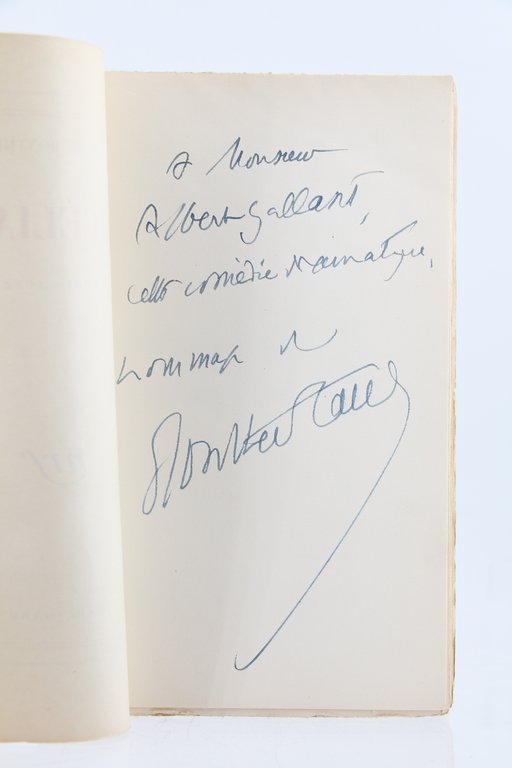 A Monsieur
Albert Gallant,
cette comédie dramatique,
hommage de
Montherlant
nrf